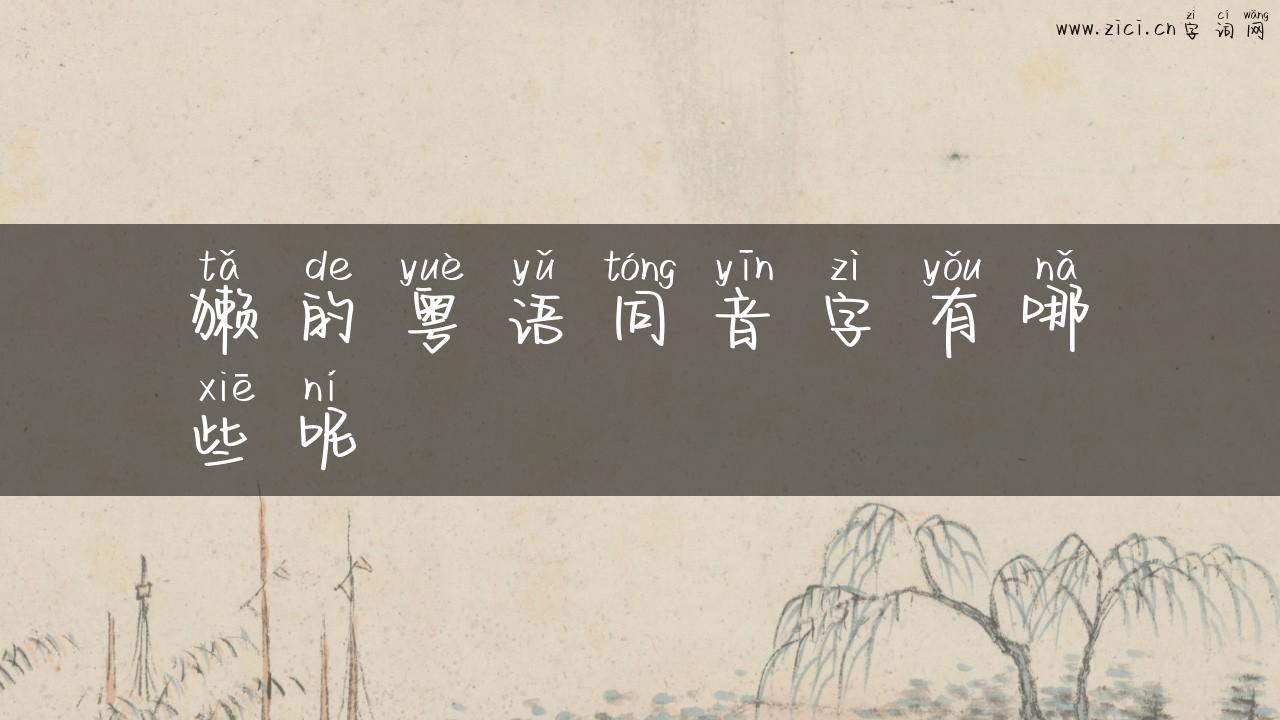 zì cí wǎng
www.zici.cn 字 词 网
tǎ de yuè yǔ tóng yīn zì yǒu nǎ
獭 的 粤 语 同 音 字 有 哪
xiē ní
些 呢